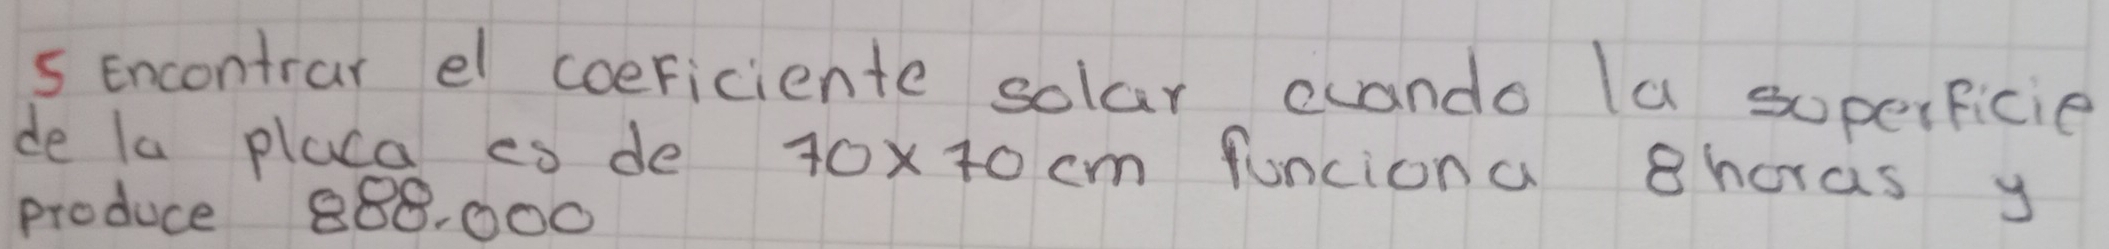 5 Encontrar el coeficiente solar cuando la superficie
de la placa es de 70x70cm funciona 8horas y
produce 888.000